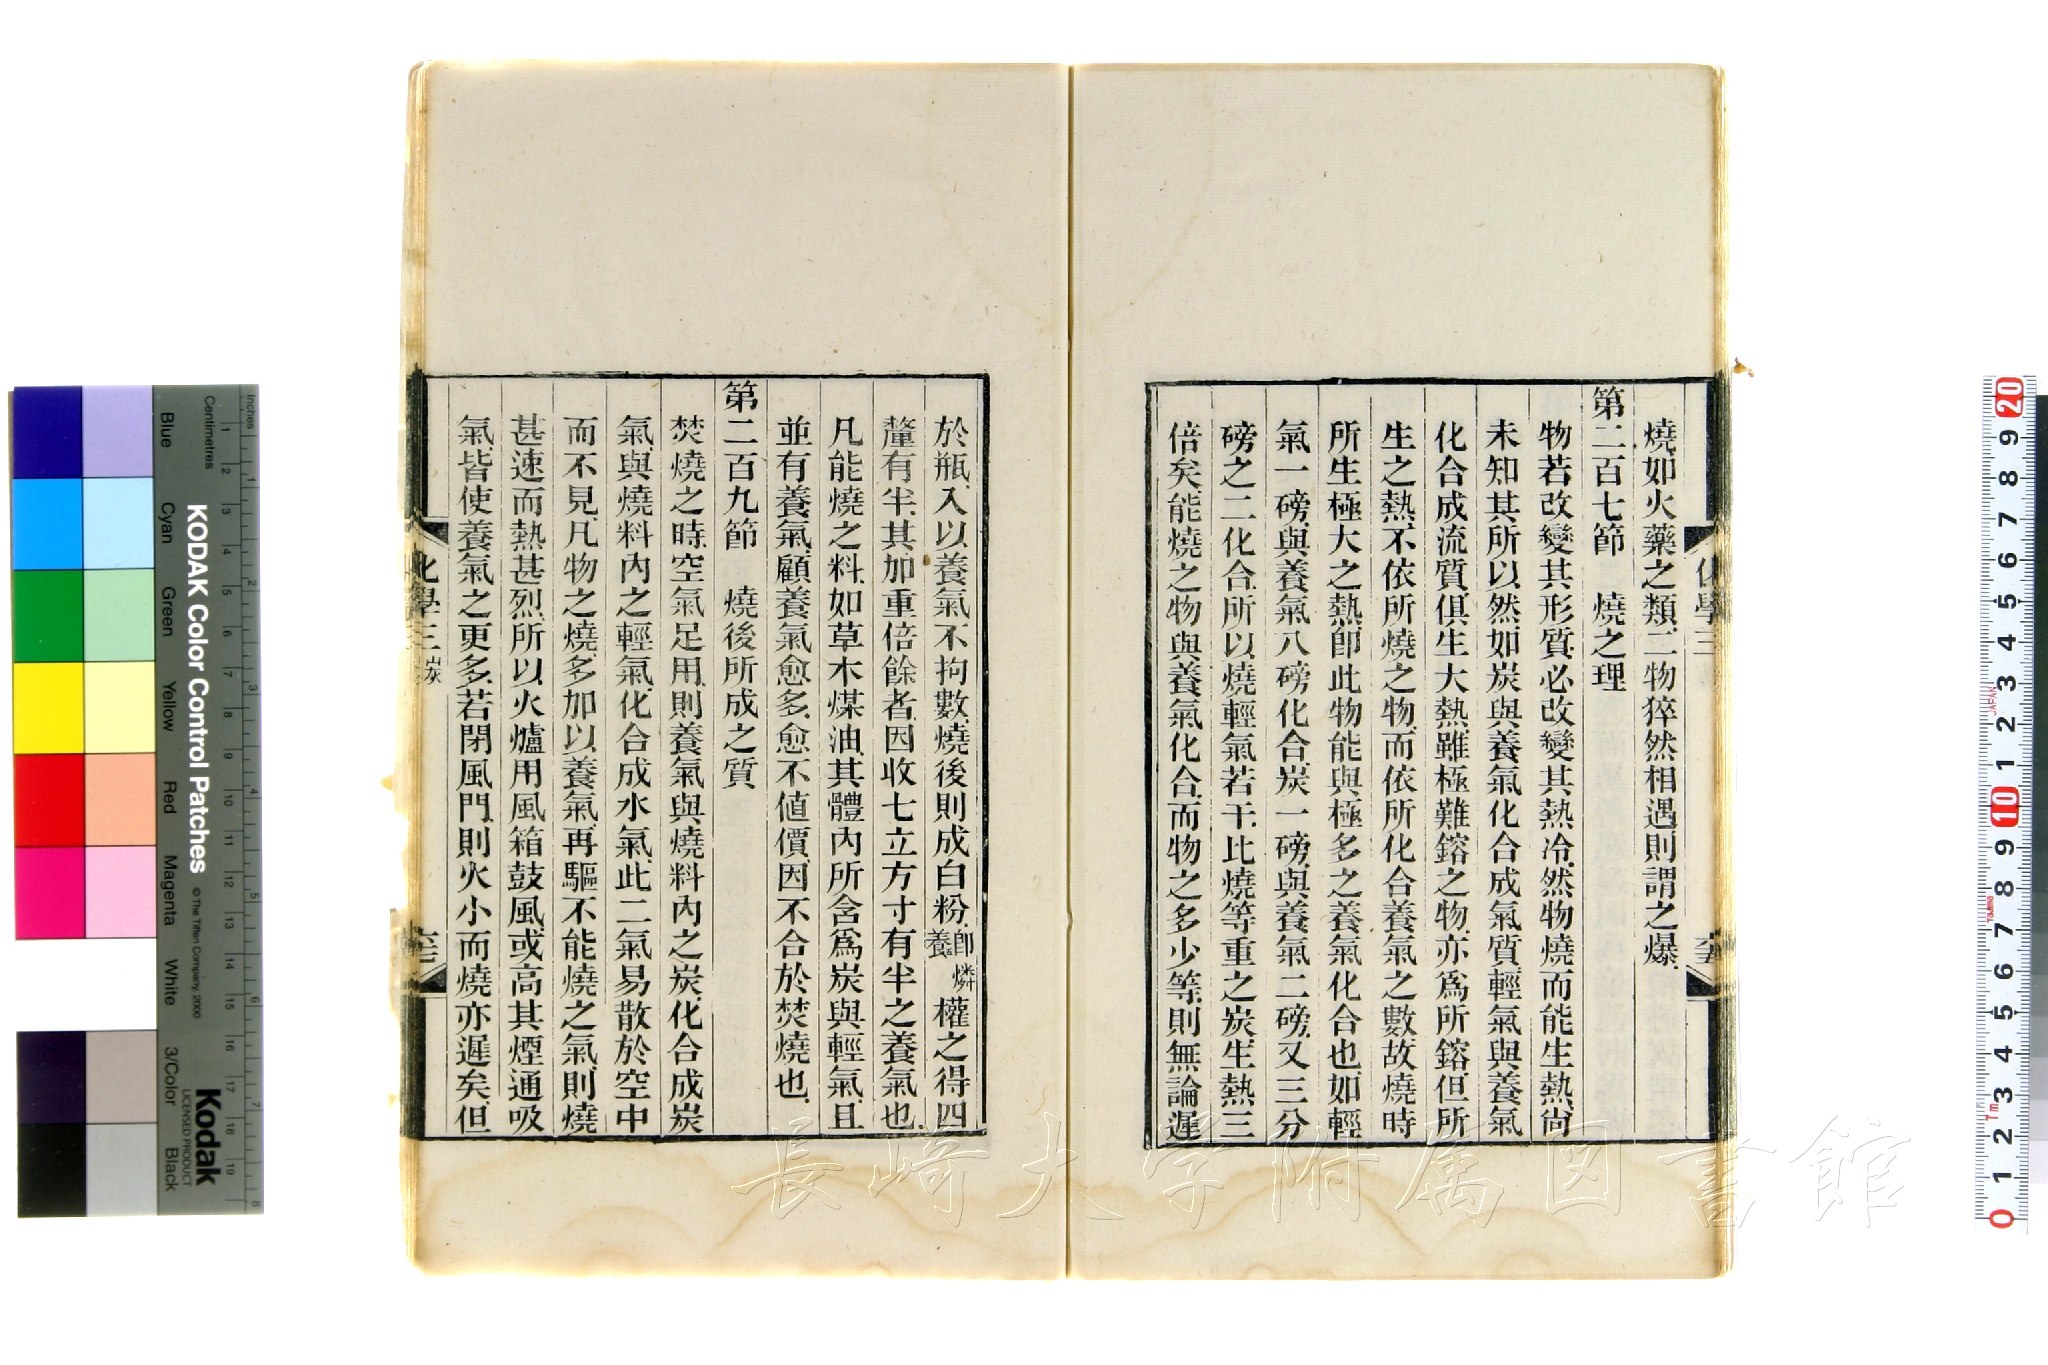 燒、如火藥之類、二物猝然相遇、則謂之爆、
第二百七節　燒之理
物若改變其形質、必改變其熱冷、然物燒而能生熱、尚
未知其所以然、如炭與養氣化合成氣質、輕氣與養氣
化合成流質、俱生大熱、雖極難鎔之物、亦爲所鎔、但所
生之熱、不依所燒之物、而依所化合養氣之數、故燒時
所生極大之熱、卽此物能與極多之養氣化合也、如輕
氣一磅、與養氣八磅化合、炭一磅、與養氣二磅、又三分
磅之二化合、所以燒輕氣若干、比燒等重之炭、生熱三
倍矣、能燒之物與養氣化合、而物之多少等、則無論遲
化學三
於瓶、入以養氣不拘數、燒後則成白粉、卽燐養權之得四
釐有半、其加重倍餘者、因收七立方寸有半之養氣也、
凡能燒之料、如草木煤油、其體內所含爲炭與輕氣、且
並有養氣、顧養氣愈多、愈不値價、因不合於焚燒也、
第二百九節　燒後所成之質
焚燒之時、空氣足用、則養氣與燒料內之炭、化合成炭
氣、與燒料內之輕氣、化合成水氣、此二氣易散於空中
而不見、凡物之燒、多加以養氣、再驅不能燒之氣、則燒
甚速而熱甚烈、所以火爐用風箱鼓風、或高其煙通吸
氣、皆使養氣之更多、若閉風門、則火小而燒亦遲矣、但
化學三 炭
長崎大学附属図書館
KODAK Color Control Patches
© The Tiffen Company, 2000
Kodak
LICENSED PRODUCT
Inches
Centimetres
Blue
Cyan
Green
Yellow
Red
Magenta
White
3/Color
Black
1 2 3 4 5 6 7 8 9 10 11 12 13 14 15 16 17 18 19
1 2 3 4 5 6 7 8
20 9 8 7 6 5 4 3 2 1 10 9 8 7 6 5 4 3 2 1 0
JAPAN